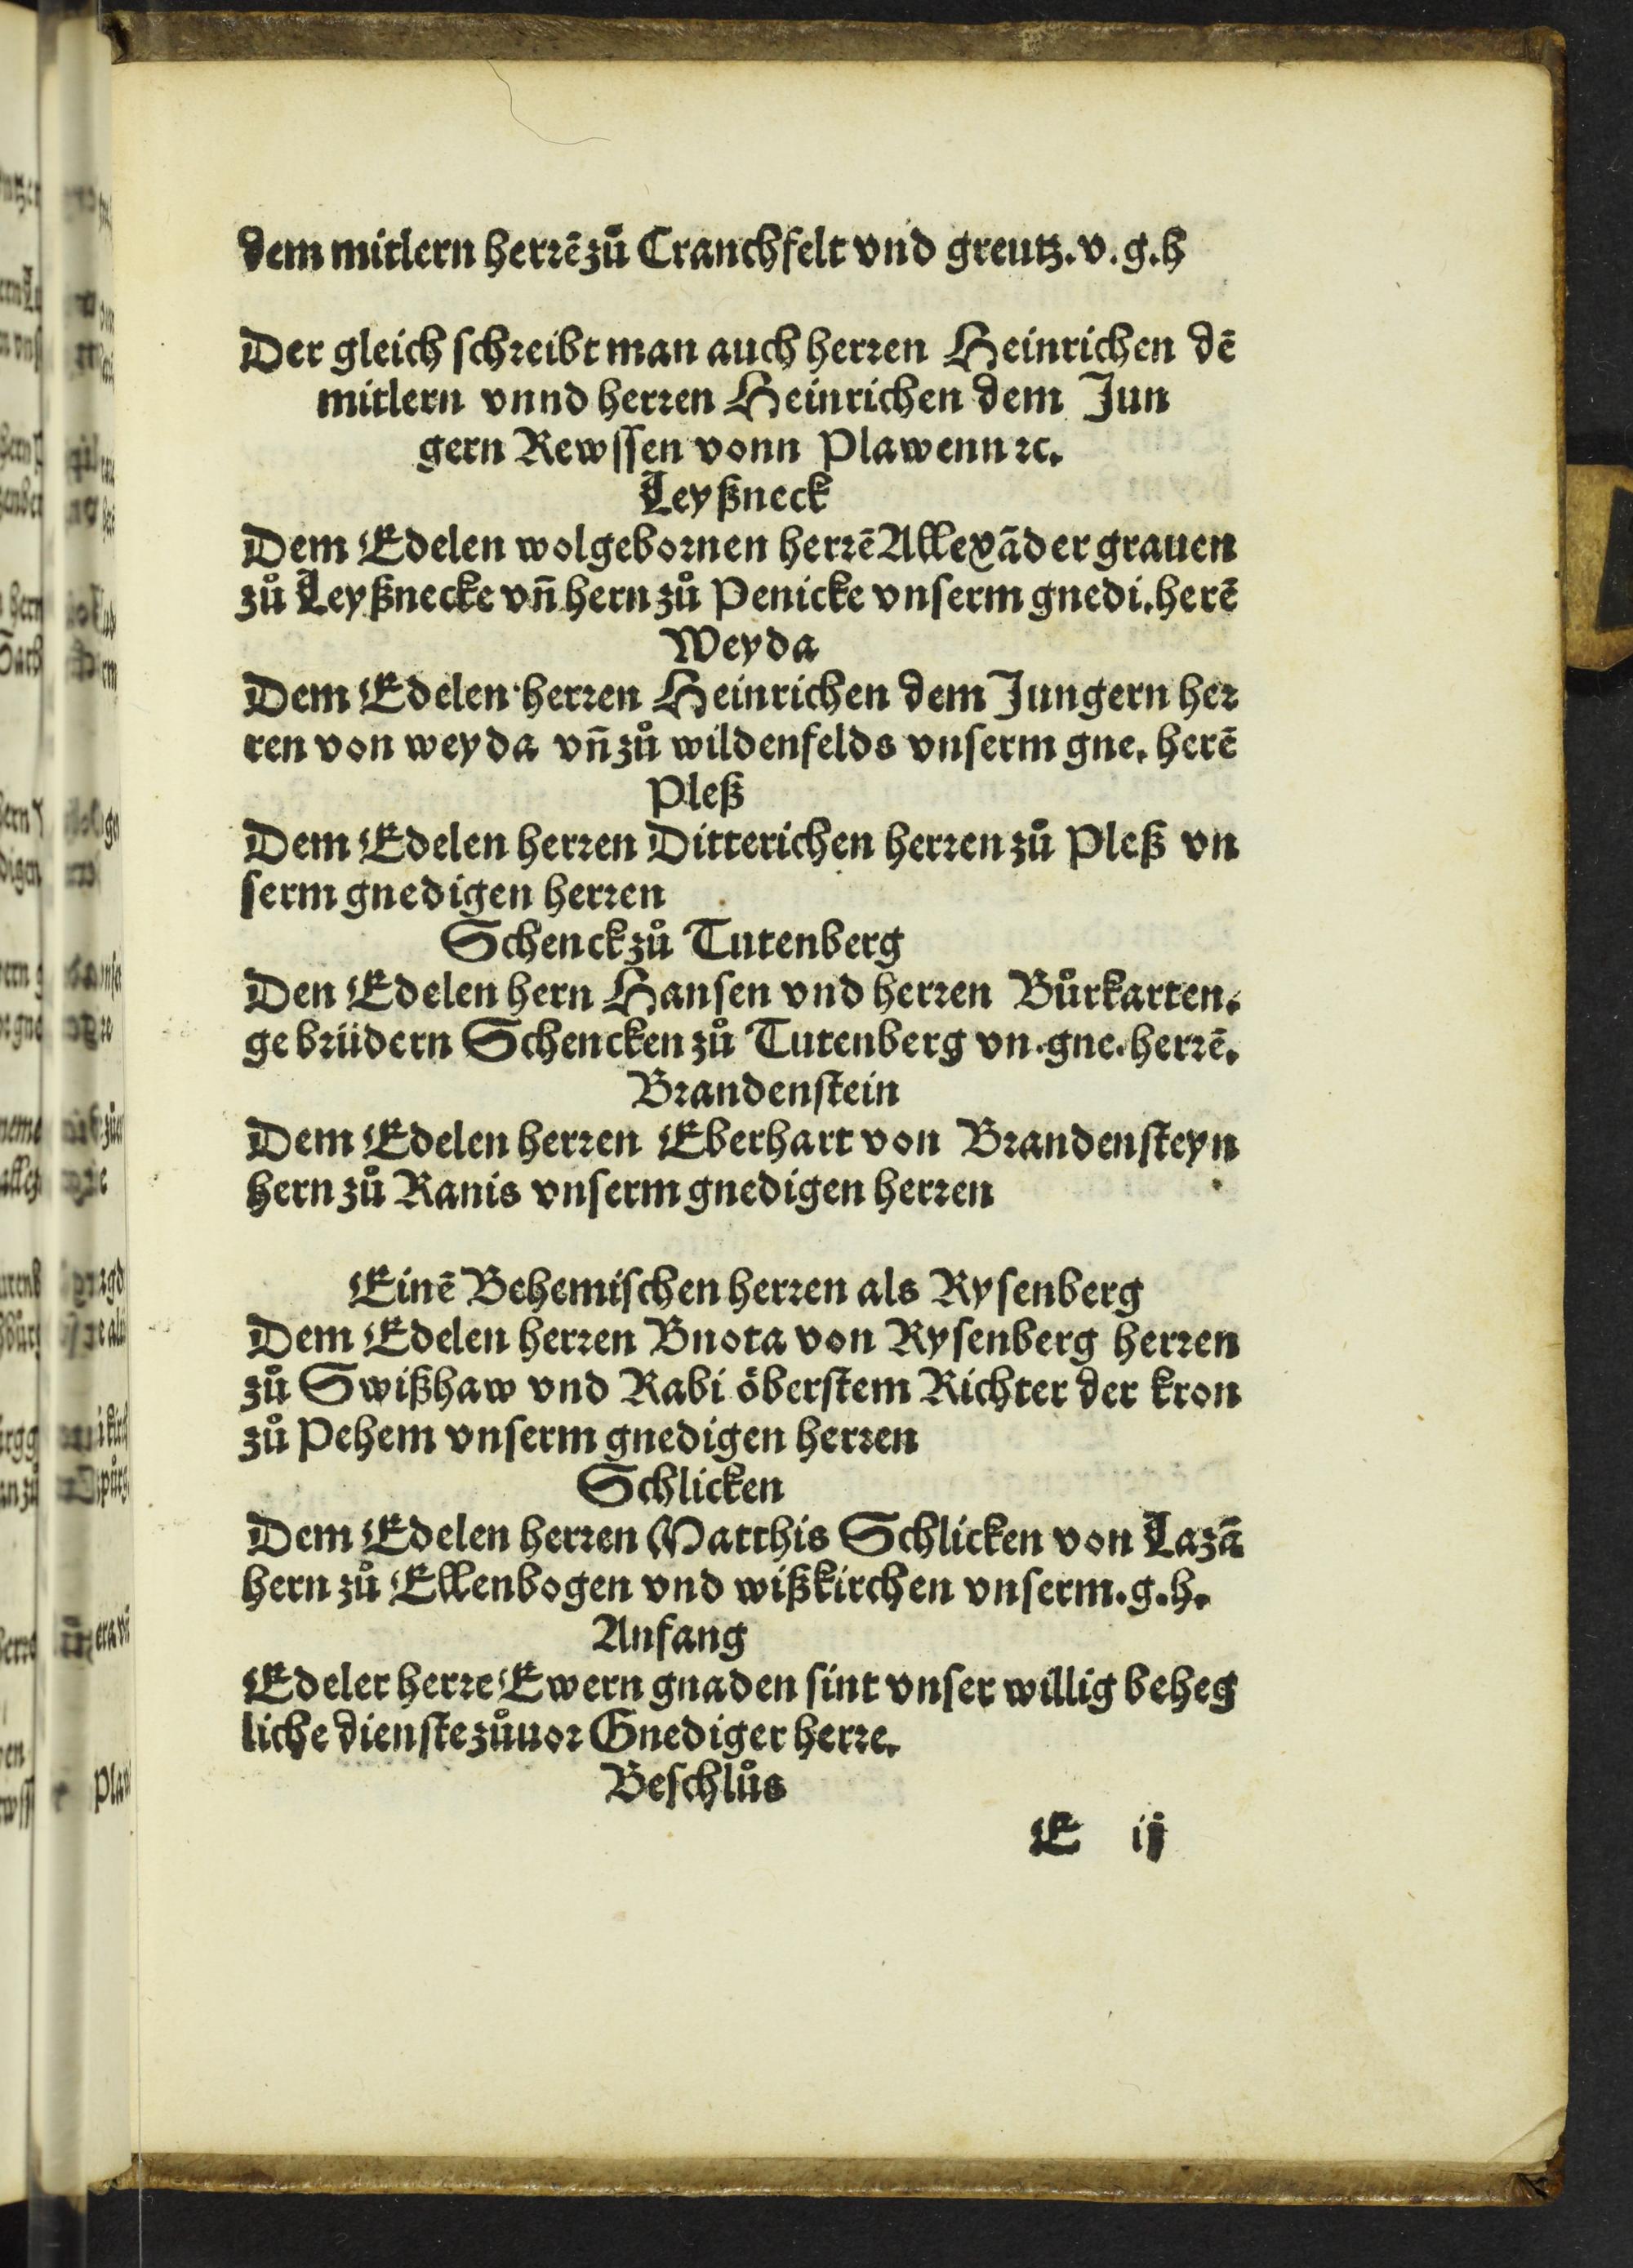 dem mitlern herrē zů Cranchfelt vnd greutz. v. g. h
Der gleich schreibt man auch herren Heinrichen dē
mitlern vnnd herren Heinrichen dem Jun
gern Rewssen vonn Plawenn ꝛc.
Leyßneck
Dem Edelen wolgebornen herrē Allexāder grauen
zů Leyßnecke vn̄ hern zů Penicke vnserm gnedi. herē
Weyda
Dem Edelen herren Heinrichen dem Jungern her
ren von weyda vn̄ zů wildenfelds vnserm gne. herē
Pleß
Dem Edelen herren Ditterichen herren zů Pleß vn
serm gnedigen herren
Schenck zů Tutenberg
Den Edelen hern Hansen vnd herren Bůrkarten.
gebrüdern Schencken zů Tutenberg vn. gne. herrē.
Brandenstein
Dem Edelen herren Eberhart von Brandensteyn
hern zů Ranis vnserm gnedigen herren
Einē Behemischen herren als Rysenberg
Dem Edelen herren Bnota von Rysenberg herren
zů Swißhaw vnd Rabi öberstem Richter der kron
zů Pehem vnserm gnedigen herren
Schlicken
Dem Edelen herren Matthis Schlicken von Lazā
hern zů Ellenbogen vnd wißkirchen vnserm. g. h.
Anfang
Edeler herre Ewern gnaden sint vnser willig beheg
liche dienste zůuor Gnediger herre.
Beschlůs
E ij